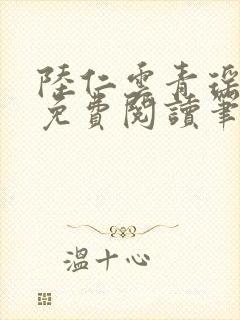 陸仁雲青瑤
免費閱讀筆
溫十心